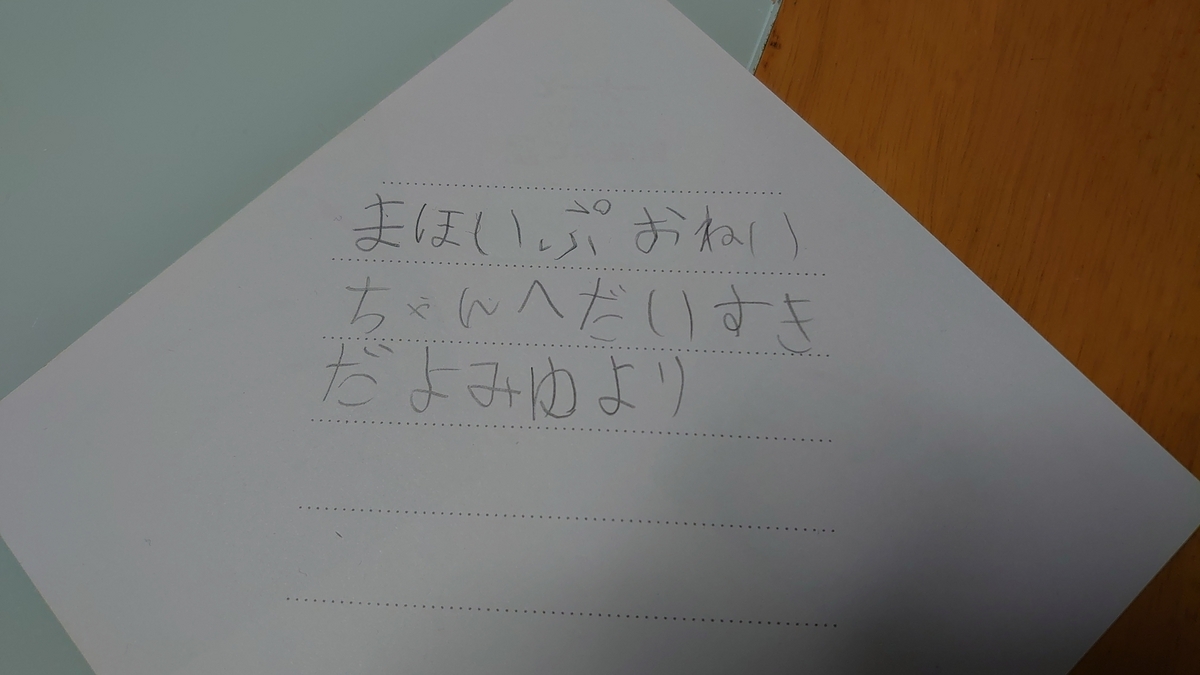 まほいぷおねい
ちゃんへだいすき
だよみゆより